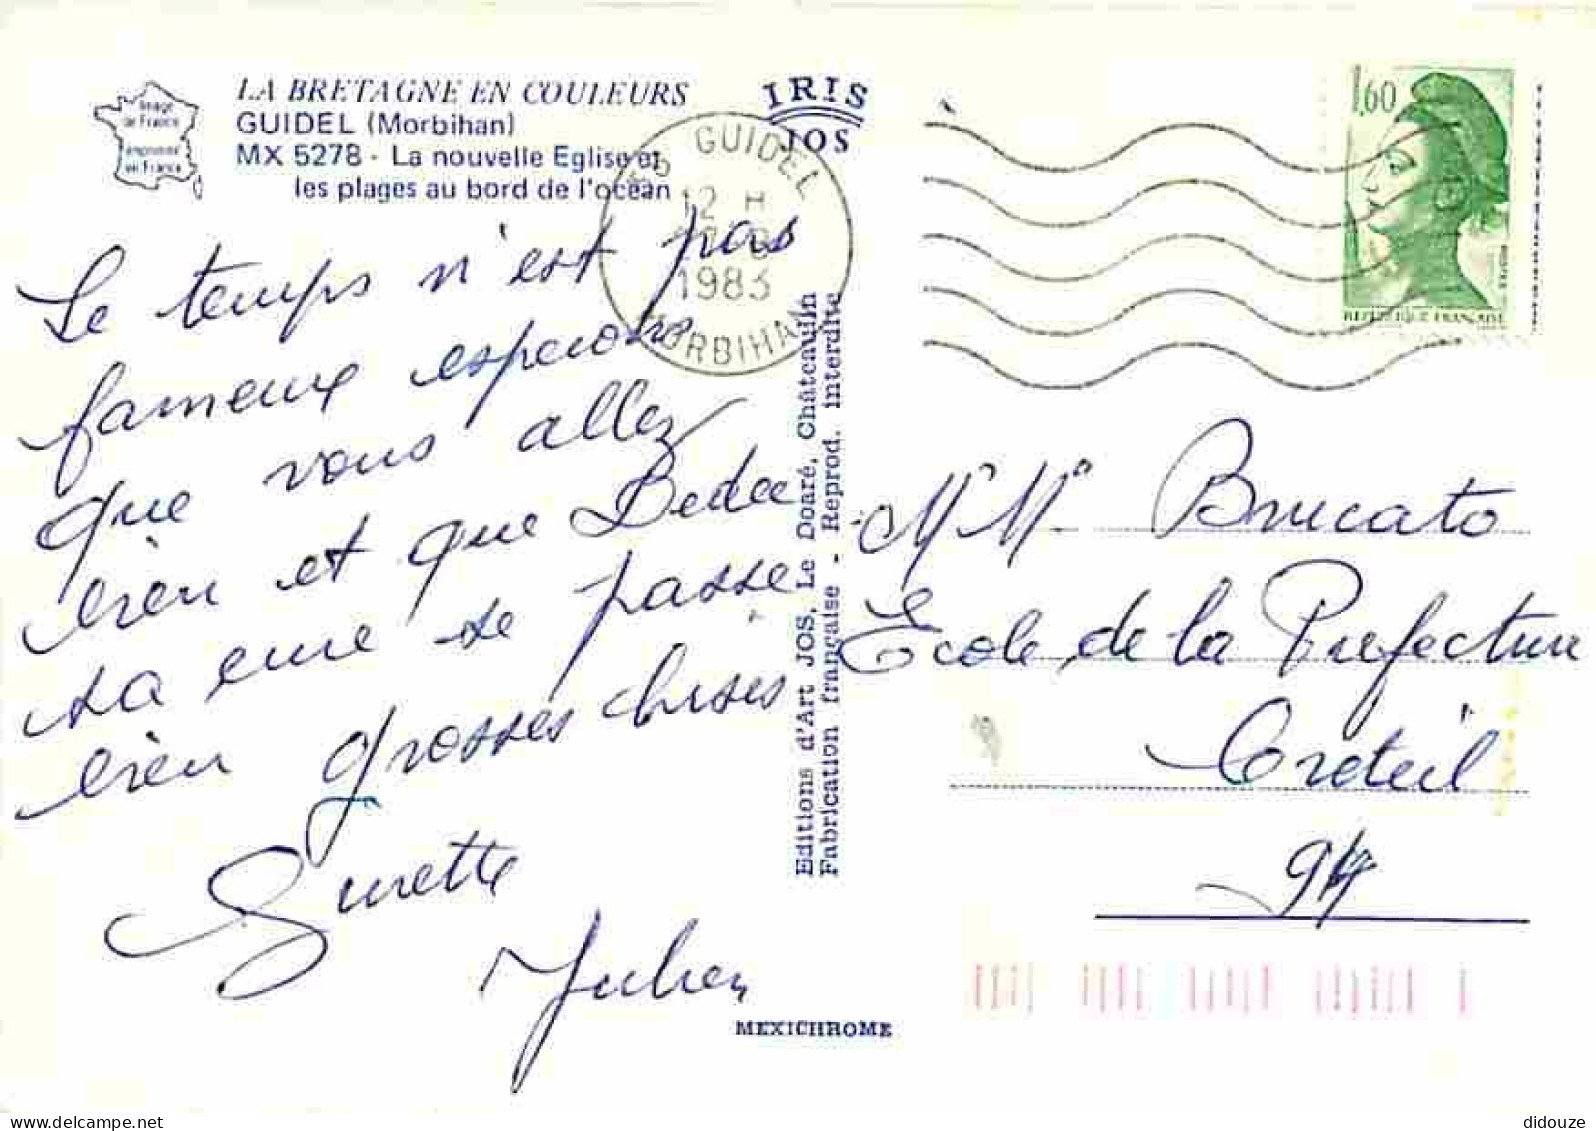 LA BRETAGNE EN COULEURS
GUIDEL (Morbihan)
MX 5278 - La nouvelle Eglise et
les plages au bord de l'océan
Image
de France
imprimée
en France
IRIS
JOS
GUIDEL
12 H
1983
MORBIHAN
1,60
REPUBLIQUE FRANÇAISE
Le temps n'est pas
fameux esperons
que vous allez
bien et que Dedee
sa cure se passe
bien grosses bises
Surette
Julien
Editions d'Art JOS, Le Doaré, Châteaulin
Fabrication française - Reprod. interdite
Mr Me Brucato
Ecole de la Prefecture
Creteil
94
MEXICHROME
didouze